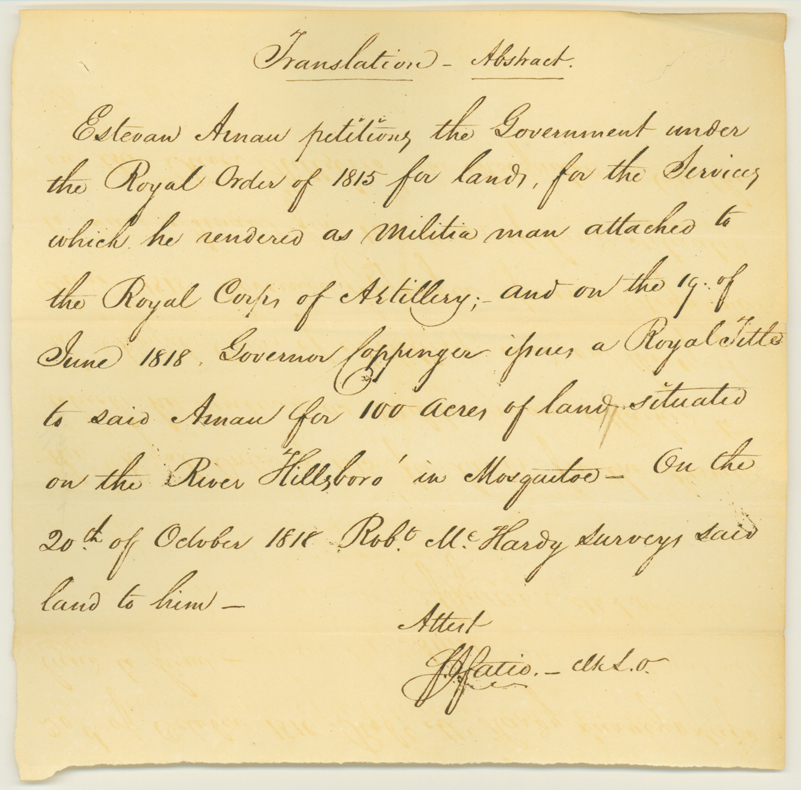 Translation - Abstract.
Estevan Arnau petitions the Government under
the Royal Order of 1815 for lands, for the Services
which he rendered as Militia man attached to
the Royal Corps of Artillery; - and on the 19. of
June 1818. Governor Coppinger issues a Royal Title
to said Arnau for 100 acres of land, situated
on the River Hillsboro' in Mosquitoe - On the
20th of October 1818 Robt. Mc Hardy surveys said
land to him -
Attest
F. J. Fatio. - Clk L.O.